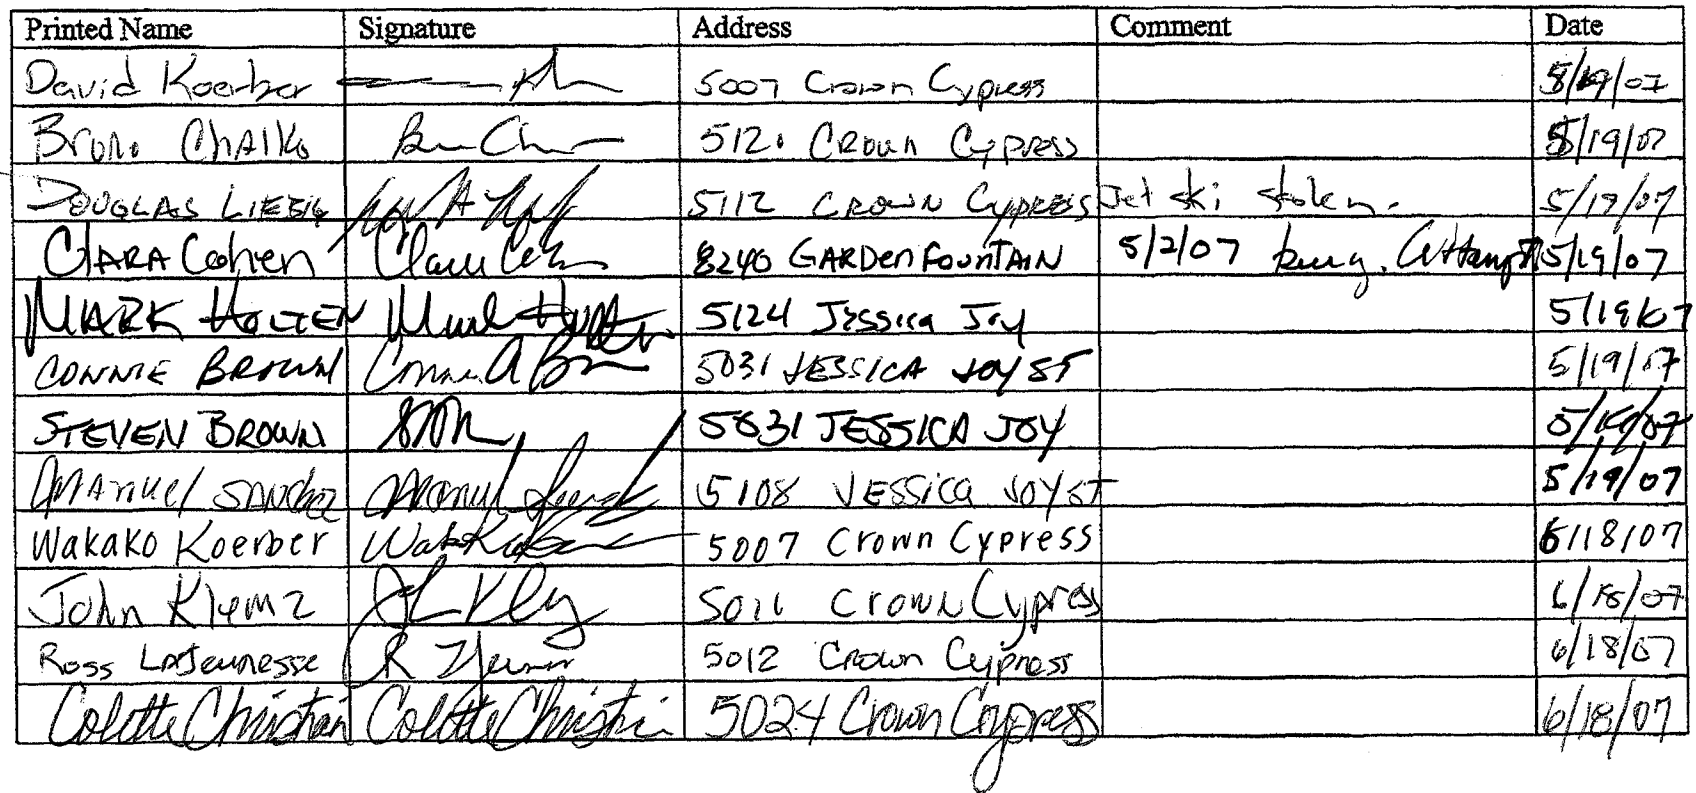 Printed Name Signature Address Comment Date
David Koerber 5007 Crown Cypress 5/19/07
Bruno Chalko 5120 Crown Cypress 5/19/07
Douglas Liebig 5112 Crown Cypress Jet ski stolen. 5/19/07
Clara Cohen Clara Cohen 8240 Garden Fountain 5/2/07 burg. Attempt 5/19/07
Mark Holten Mark Holten 5124 Jessica Joy 5/19/07
Connie Brown Connie A Brown 5031 Jessica Joy St 5/19/07
Steven Brown 5031 Jessica Joy 5/19/07
Manuel Sanchez Manuel Sanchez 5108 Jessica Joy St 5/19/07
Wakako Koerber Wakako Koerber 5007 Crown Cypress 6/18/07
John Klemz 5011 Crown Cypress 6/18/07
Ross LaJeunesse 5012 Crown Cypress 6/18/07
Colette Christian Colette Christian 5024 Crown Cypress 6/18/07